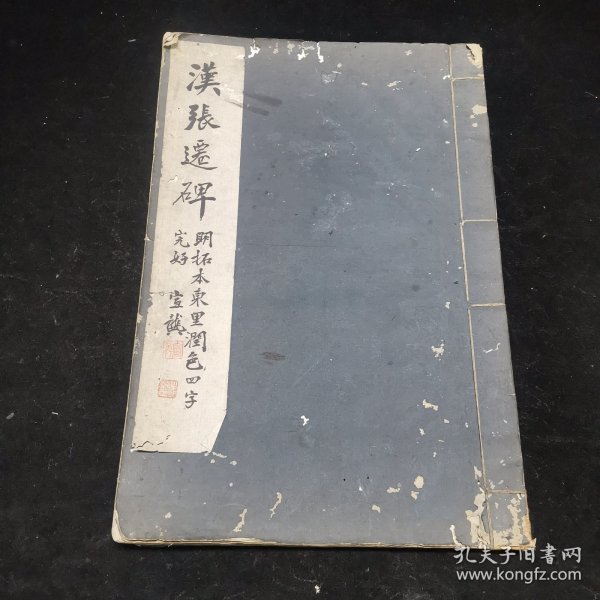 漢張遷碑
明拓本東里潤色四字
完好 宣龔
孔夫子旧書网
www.kongfz.com